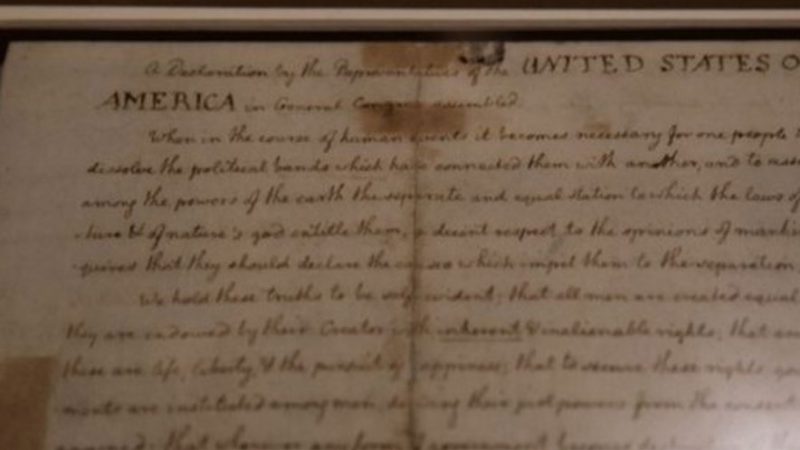 A Declaration by the Representatives of the UNITED STATES O
AMERICA in General Congress assembled.
When in the course of human events it becomes necessary for one people
dissolve the political bands which have connected them with another, and to
among the powers of the earth the separate and equal station to which the laws of
ture & of nature's god entitle them, a decent respect to the opinions of
quires that they should declare the causes which impel them to the separation
We hold these truths to be self evident; that all men are created equal
they are endowed by their Creator with inherent & inalienable rights; that
these are life, liberty, & the pursuit of happiness; that to secure these rights
ments are instituted among men, deriving their just powers from the consent
that whenever any form of government becomes